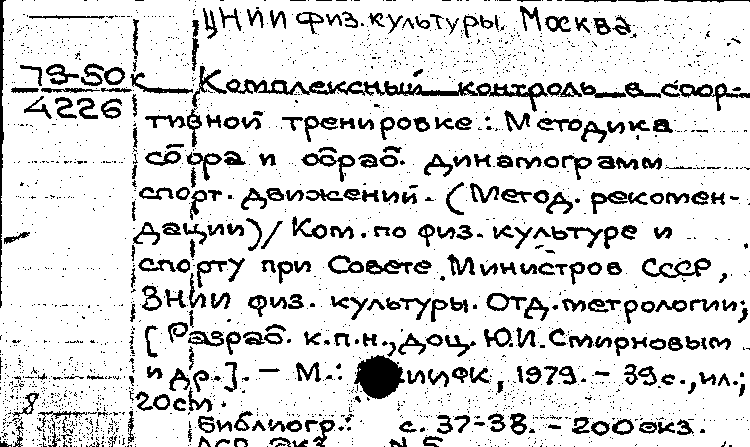 ЦНИИ физ. культуры. Москва.
79-50к
4226
Комплексный контроль в спор-
тивной тренировке: Методика
сбора и обраб. динамограмм
спорт. движений. (Метод. рекомен-
дации)/ Ком. по физ. культуре и
спорту при Совете Министров СССР,
ВНИИ физ. культуры. Отд. метрологии;
[Разраб. к.п.н., доц. Ю.И. Смирновым
и др.]. – М.: ИИФК, 1979. – 39с., ил.;
20см.
8
Библиогр.: с. 37-38. – 200 экз.